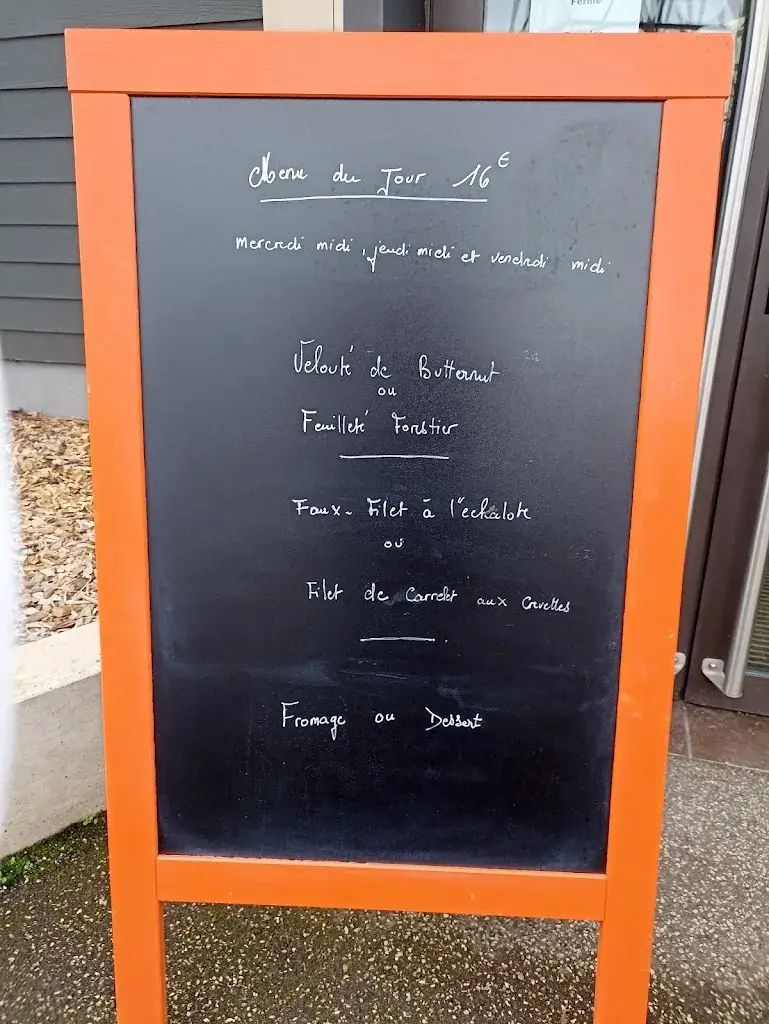 Fermé
Menu du Jour 16€
mercredi midi, jeudi midi et vendredi midi
Velouté de Butternut
ou
Feuilleté Forestier
Faux-Filet à l'echalote
ou
Filet de Carrelet aux Crevettes
Fromage ou Dessert